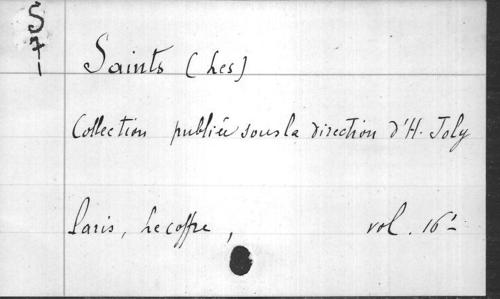 S
7
1
Saints (Les)
Collection publiée sous la direction d'H. Joly
Paris, Lecoffre, vol. 16º